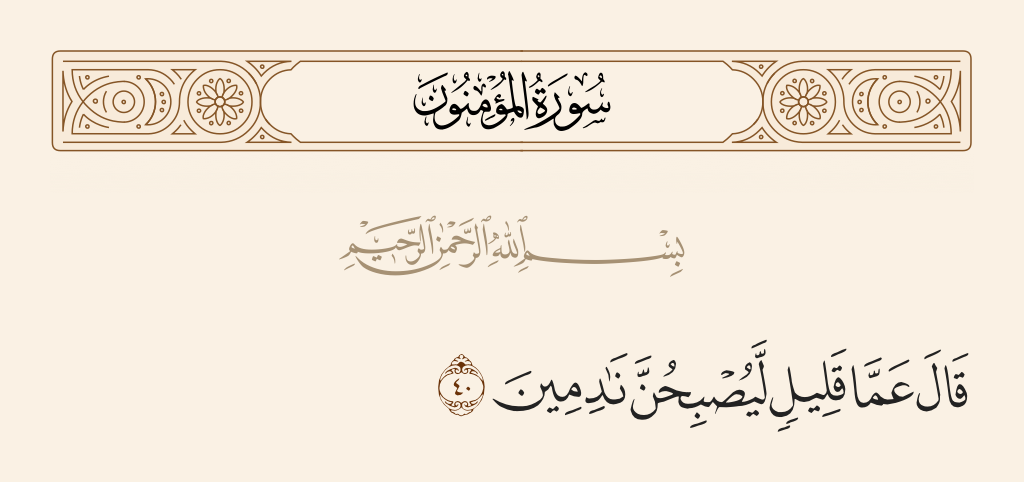 سُورَةُ الْمُؤْمِنُونَ
بِسْمِ ٱللَّهِ ٱلرَّحْمَٰنِ ٱلرَّحِيمِ
قَالَ عَمَّا قَلِيلٍ لَّيُصْبِحُنَّ نَٰدِمِينَ ٤٠